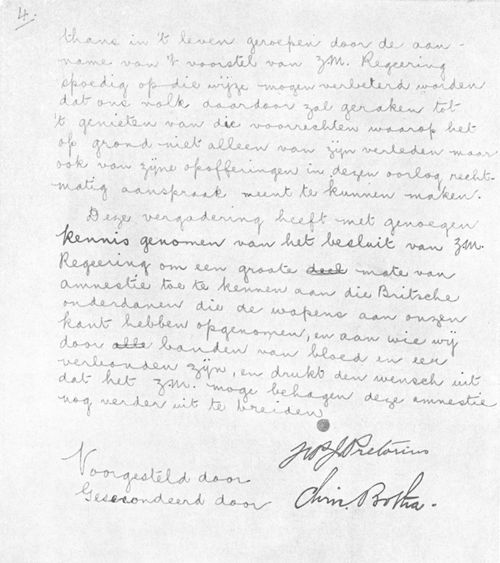 4.
thans in 't leven geroepen door de aan-
name van 't voorstel van Z.M. Regeering
spoedig op die wijze mogen verbeterd worden
dat ons volk daardoor zal geraken tot
't genieten van die voorrechten waarop het
op grond niet alleen van zijn verleden maar
ook van zijne opofferingen in dezen oorlog recht-
matig aanspraak meent te kunnen maken.
Deze vergadering heeft met genoegen
kennis genomen van het besluit van Z.M.
Regeering om een groote deel mate van
amnestie toe te kennen aan die Britsche
onderdanen die de wapens aan onzen
kant hebben opgenomen, en aan wie wij
door alle banden van bloed en eer
verbonden zijn, en drukt den wensch uit
dat het Z.M. moge behagen deze amnestie
nog verder uit te breiden
J Pretorius
Voorgesteld door
Chris. Botha.
Gesecondeerd door